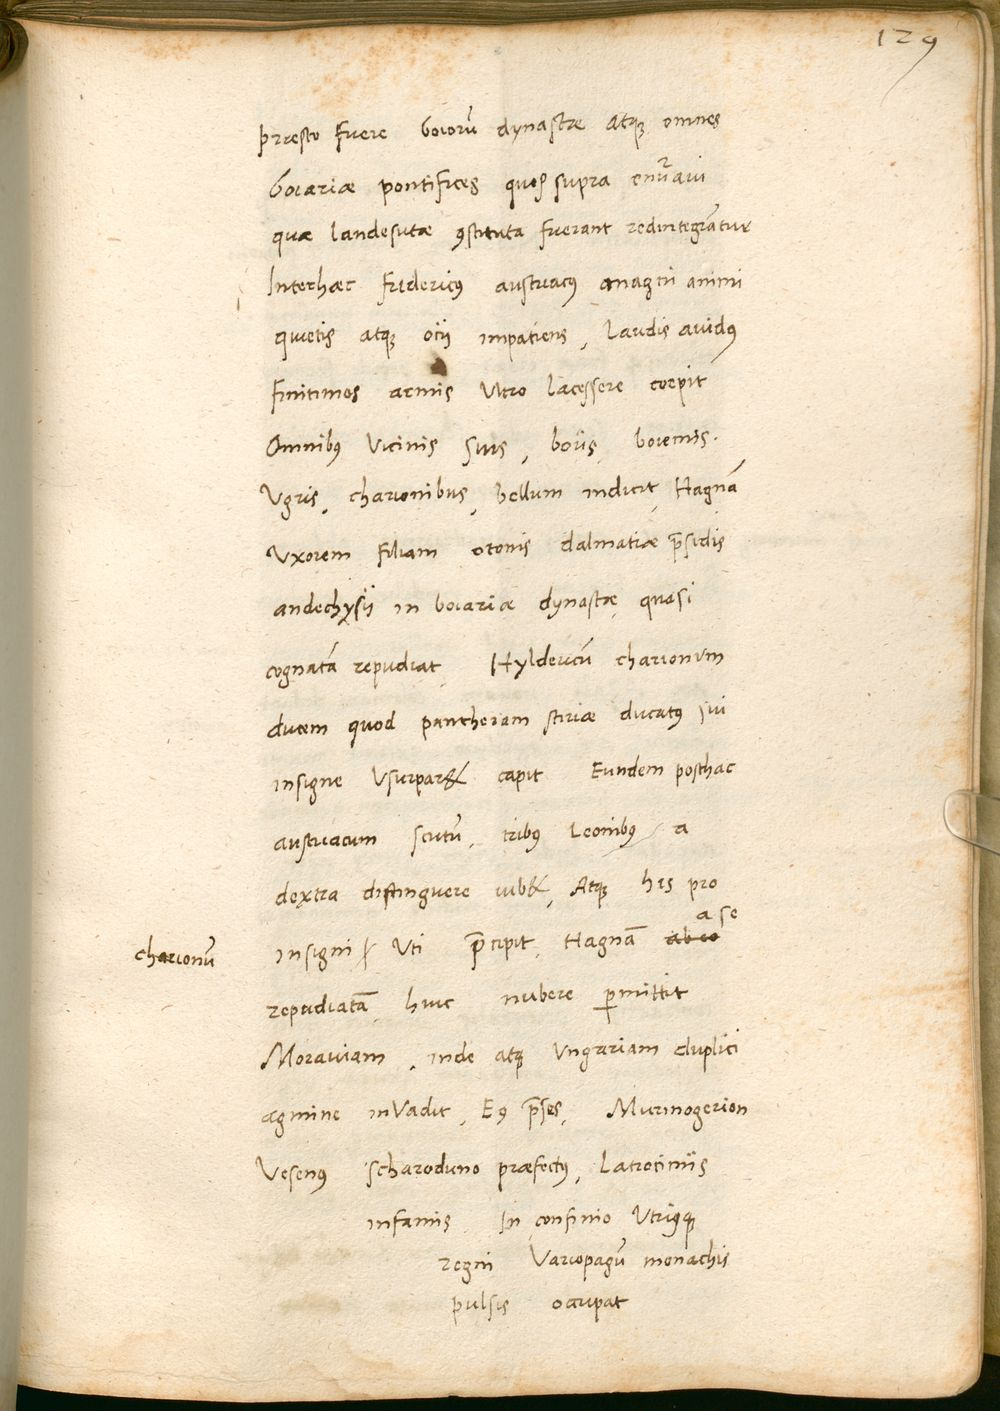 129
praesto fuere boiorū dynastæ atq; omnes
boiariæ pontifices quos supra enūavi
quæ landesutæ ꝯstituta fuerant redintegrātur
Interhæc fridericꝰ austriacꝰ magni animi
quietis atq; ocii impatiens, laudis avidꝰ
finitimos armis Vltro lacessere coepit
Omnibꝰ Vicinis suis, boiis, boiemis.
Vgris, charionibus, bellum indicit, Hagnā
Vxorem filiam otonis dalmatiæ p̄sidis
andechysii in boiariæ dynastæ, quasi
cognatā repudiat, Hyldericū charionum
ducem quod pantheram stiriæ ducatꝰ sui
insigne Vsurpar& capit Eundem posthac
austriacum scutū, tribꝰ leonibꝰ a
dextra distinguere iub&, Atq; his pro
a se
insigni Vti p̄cipit, Hagnā ab eo
charionū
repudiatā, huic nubere ꝑmittit
Moraviam, inde atq; Vngariam duplici
agmine inVadit, Eꝰ p̄ses, Murmogerion
Vesenꝰ scharoduno præfectꝰ, latrociniis
infamis, In confinio Vtriꝰq;
regni Variopagū monachis
pulsis occupat